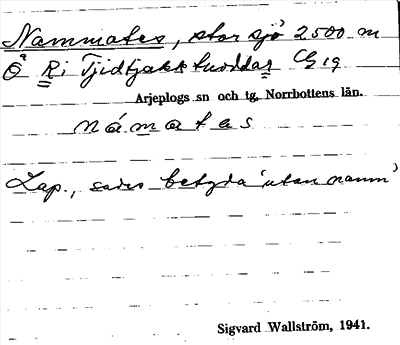 Nammates, stor sjö 2500 m
Ö Ri Tjidtjakktuoddar Cg 19
Arjeplogs sn och tg, Norrbottens län.
námatas
Lap., sades betyda 'utan namn'
Sigvard Wallström, 1941.